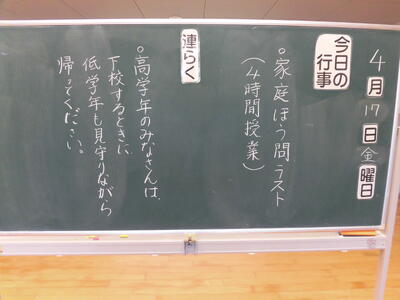 4月17日金曜日
今日の行事
○家庭ほう問ラスト
(4時間授業)
連らく
○高学年のみなさんは、
下校するときに
低学年も見守りながら
帰ってください。